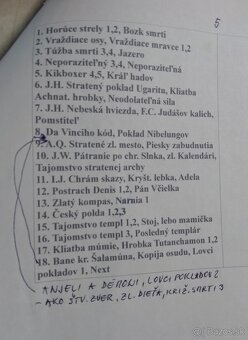 5
1. Horúce strely 1,2, Bozk smrti
2. Vraždiace osy, Vraždiace mravce 1,2
3. Túžba smrti 3,4, Jazero
4. Neporaziteľný 3,4, Neporaziteľná
5. Kikboxer 4,5, Kráľ hadov
6. J.H. Stratený poklad Ugaritu, Kliatba
Achnat. hrobky, Neodolateľná sila
7. J.H. Nebeská hviezda, F.C. Judášov kalich,
Pomstiteľ
8. Da Vinciho kód, Poklad Nibelungov
9. A.Q. Stratené zl. mesto, Piesky zabudnutia
10. J.W. Pátranie po chr. Slnka, zl. Kalendári,
Tajomstvo stratenej archy
11. I.J. Chrám skazy, Kryšt. lebka, Adela
12. Postrach Denis 1,2, Pán Včielka
13. Zlatý kompas, Narnia 1
14. Český polda 1,2,3
15. Tajomstvo templ 1,2, Stoj, lebo mamička
16. Tajomstvo templ 3, Posledný templár
17. Kliatba múmie, Hrobka Tutanchamon 1,2
18. Bane kr. Šalamúna, Kopija osudu, Lovci
pokladov 1, Next
ANJELI A DÉMONI, LOVCI POKLADOV 2
- AKO ŠTV. ZVER, ZL. DIEŤA,